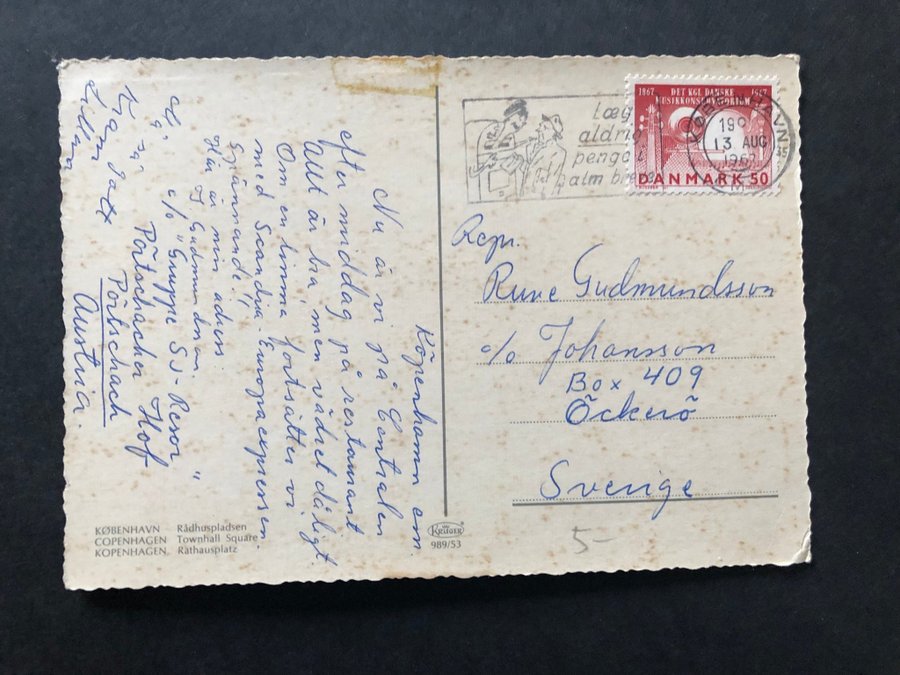 Köpenhamn em.
Nu är vi på Centralen
efter middag på restaurant.
Allt är bra, men vädret dåligt.
Om en timme fortsätter vi
med Scandia-Europaexpressen.
Spännande!!
Här är min adress:
J Gudmundson
c/o "Gruppe SJ-Resor"
Pörtschacher Hof
Pörtschach
Austria.
Kram
1867 DET KGL DANSKE 1967
MUSIKKONSERVATORIUM
DANMARK 50
KØBENHAVN
19
13 AUG
1967
læg
aldrig
penge
alm breve
Repr.
Rune Gudmundsson
c/o Johansson
Box 409
Öckerö
Sverige
5-
KØBENHAVN Rådhuspladsen
COPENHAGEN Townhall Square
KOPENHAGEN, Rathausplatz
KRÜGER
989/53